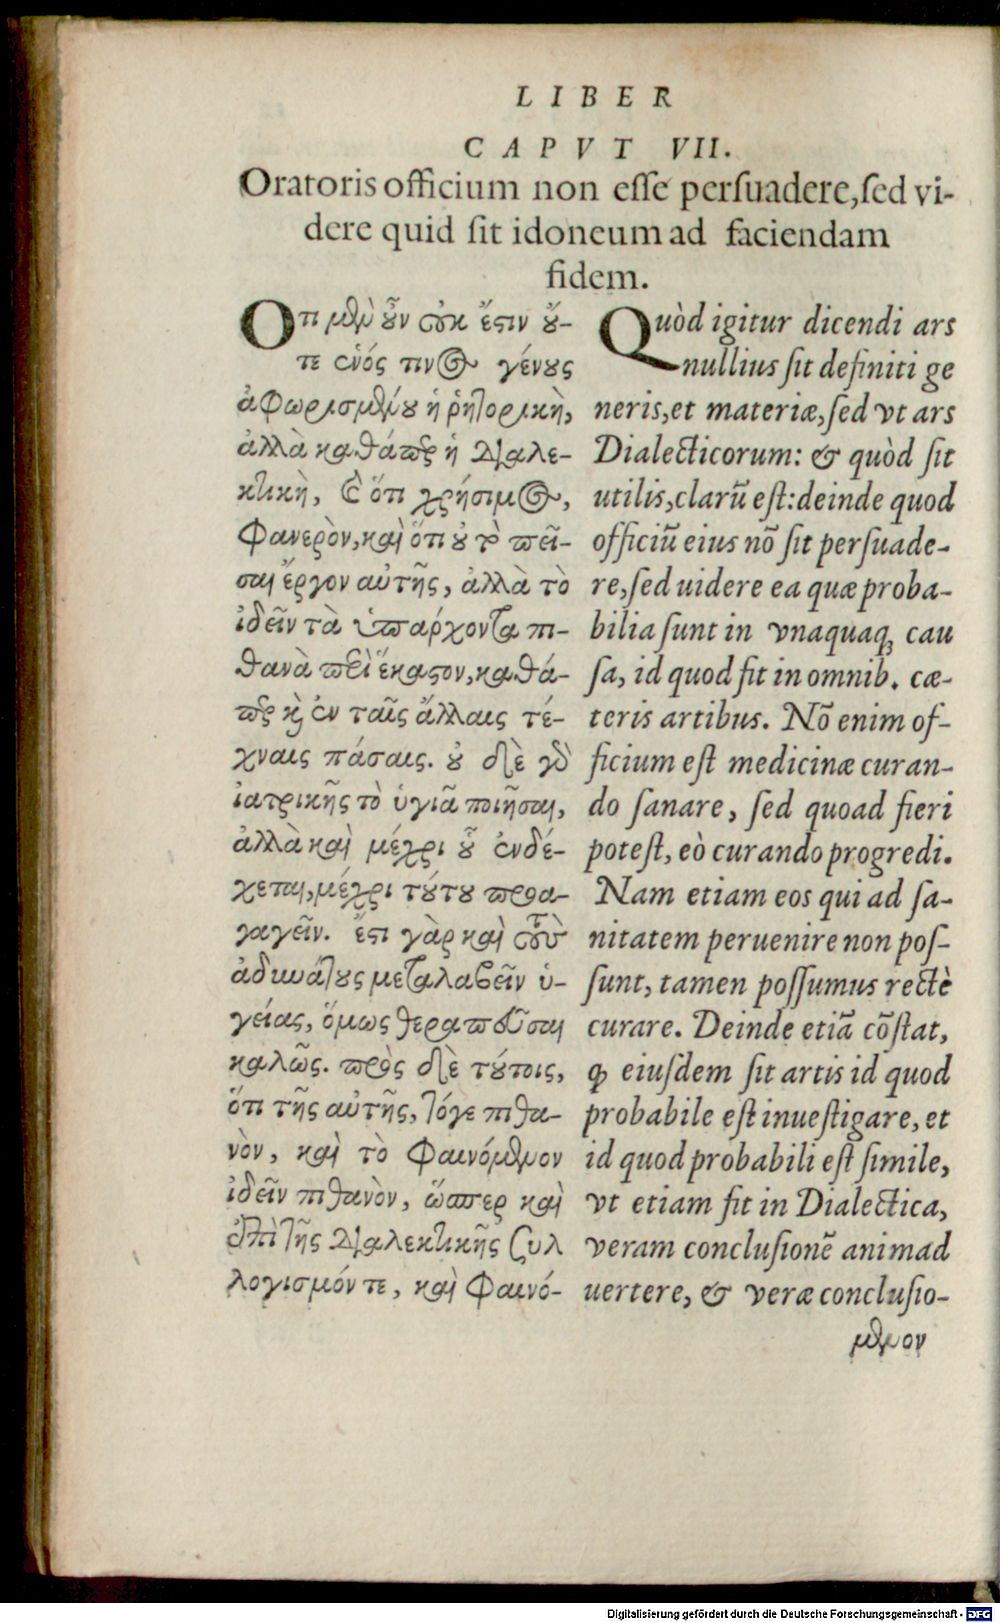 LIBER
CAPVT VII.
Oratoris officium non esse persuadere, sed vi-
dere quid sit idoneum ad faciendam
fidem.
Οτι μὲν οὖν οὐκ ἔστιν οὔ-
τε ἑνός τινος γένους
ἀφωρισμένου ἡ ῥητορικὴ,
ἀλλὰ καθάπερ ἡ διαλε-
κτικὴ, καὶ ὅτι χρήσιμος,
φανερὸν, καὶ ὅτι οὐ τὸ πεῖ-
σαι ἔργον αὐτῆς, ἀλλὰ τὸ
ἰδεῖν τὰ ὑπάρχοντα πι-
θανὰ περὶ ἕκαστον, καθά-
περ καὶ ἐν ταῖς ἄλλαις τέ-
χναις πάσαις. οὐ δὲ γὰρ
ἰατρικῆς τὸ ὑγιᾶ ποιῆσαι,
ἀλλὰ καὶ μέχρι οὗ ἐνδέ-
χεται, μέχρι τούτου προα-
γαγεῖν. ἔστι γὰρ καὶ τοὺς
ἀδυνάτους μεταλαβεῖν ὑ-
γείας, ὅμως θεραπεῦσαι
καλῶς. πρὸς δὲ τούτοις,
ὅτι τῆς αὐτῆς, τόγε πιθα-
νὸν, καὶ τὸ φαινόμενον
ἰδεῖν πιθανὸν, ὥσπερ καὶ
ἐπὶ τῆς διαλεκτικῆς συλ
λογισμόν τε, καὶ φαινό-
Quòd igitur dicendi ars
nullius sit definiti ge
neris, et materiæ, sed vt ars
Dialecticorum: & quòd sit
utilis, clarũ est: deinde quod
officiũ eius nõ sit persuade-
re, sed uidere ea quæ proba-
bilia sunt in vnaquaq; cau
sa, id quod fit in omnib. cæ-
teris artibus. Nõ enim of-
ficium est medicinæ curan-
do sanare, sed quoad fieri
potest, eò curando progredi.
Nam etiam eos qui ad sa-
nitatem peruenire non pos-
sunt, tamen possumus rectè
curare. Deinde etiã cõstat,
ꝙ eiusdem sit artis id quod
probabile est inuestigare, et
id quod probabili est simile,
vt etiam fit in Dialectica,
veram conclusionẽ animad
uertere, & veræ conclusio-
μενον
Digitalisierung gefördert durch die Deutsche Forschungsgemeinschaft - DFG